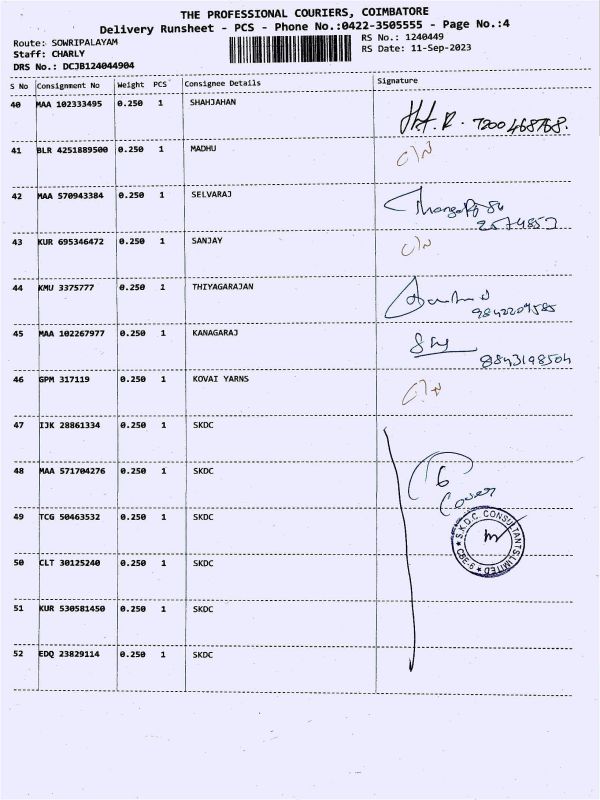 THE PROFESSIONAL COURIERS, COIMBATORE
Delivery Runsheet - PCS - Phone No.:0422-3505555 - Page No.:4
Route: SOWRIPALAYAM
RS No.: 1240449
Staff: CHARLY
RS Date: 11-Sep-2023
DRS No.: DCJB124044904
S No Consignment No Weight PCS Consignee Details Signature
40 MAA 102333495 0.250 1 SHAHJAHAN
7200468768.
41 BLR 4251889500 0.250 1 MADHU
C/N
42 MAA 570943384 0.250 1 SELVARAJ
43 KUR 695346472 0.250 1 SANJAY
C/N
44 KMU 3375777 0.250 1 THIYAGARAJAN
45 MAA 102267977 0.250 1 KANAGARAJ
9843198504
46 GPM 317119 0.250 1 KOVAI YARNS
47 IJK 28861334 0.250 1 SKDC
48 MAA 571704276 0.250 1 SKDC
6
Cover
49 TCG 50463532 0.250 1 SKDC
S.K.D.C. CONSULTANTS LIMITED
CBE-6
50 CLT 30125240 0.250 1 SKDC
51 KUR 530581450 0.250 1 SKDC
52 EDQ 23829114 0.250 1 SKDC